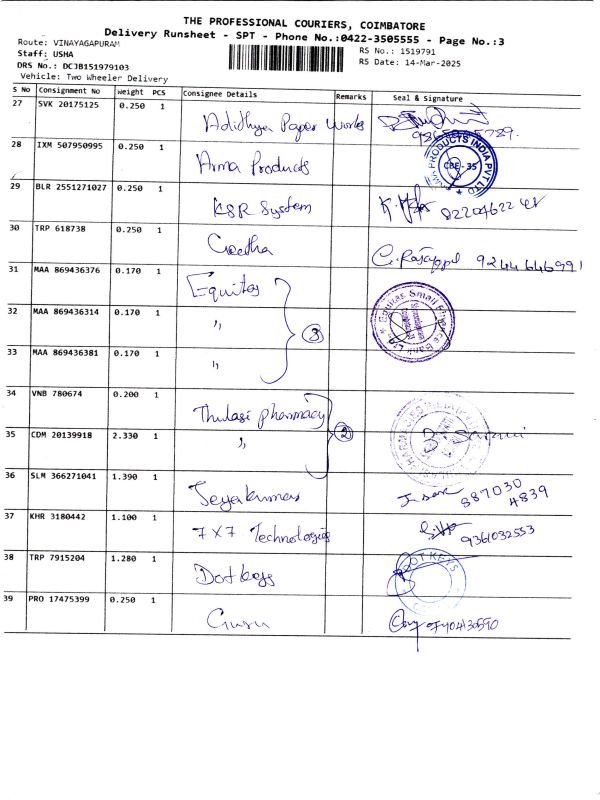 THE PROFESSIONAL COURIERS, COIMBATORE
Delivery Runsheet - SPT - Phone No.:0422-3505555 - Page No.:3
Route: VINAYAGAPURAM
Staff: USHA
DRS No.: DCJB151979103
Vehicle: Two Wheeler Delivery
RS No.: 1519791
RS Date: 14-Mar-2025
S No Consignment No Weight PCS Consignee Details Remarks Seal & Signature
27 SVK 20175125 0.250 1 Adithya Paper Works
28 IXM 507950995 0.250 1 Arma Products PRODUCTS INDIA PVT LTD CBE - 35
29 BLR 2551271027 0.250 1 KSR System
30 TRP 618738 0.250 1 Geetha C. Rajappl 9244646991
31 MAA 869436376 0.170 1 Equitas
32 MAA 869436314 0.170 1 " 3 Equitas Small Finance Bank Ltd
33 MAA 869436381 0.170 1 "
34 VNB 780674 0.200 1 Thulasi pharmacy
35 CDM 20139918 2.330 1 " 2
36 SLM 366271041 1.390 1 Jeyakumar 887030 4839
37 KHR 3180442 1.100 1 7x7 Technologies 9361032553
38 TRP 7915204 1.280 1 Dot keys DOT KEYS
39 PRO 17475399 0.250 1 Guru